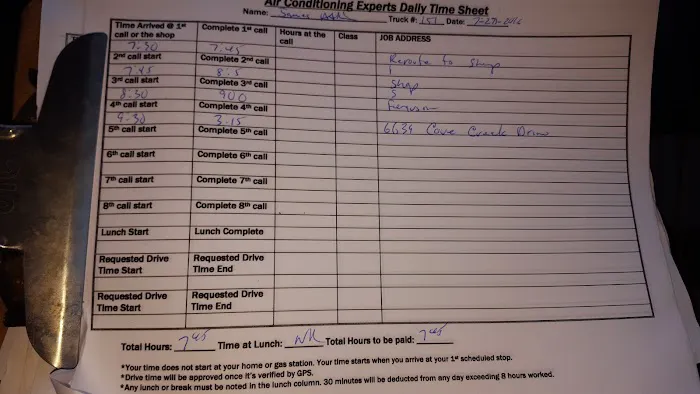 Air Conditioning Experts Daily Time Sheet
Name: Truck #: 151 Date: 7-27-2016
Time Arrived @ 1st call or the shop Complete 1st call Hours at the call Class JOB ADDRESS
7:30 7:45 Reroute to Shop
2nd call start Complete 2nd call
7:45 8:
3rd call start Complete 3rd call Shop
8:30 900
4th call start Complete 4th call Ferguson
9:30 3:15
5th call start Complete 5th call 6639 Cove Creek Drive
6th call start Complete 6th call
7th call start Complete 7th call
8th call start Complete 8th call
Lunch Start Lunch Complete
Requested Drive Time Start Requested Drive Time End
Requested Drive Time Start Requested Drive Time End
Total Hours: 745 Time at Lunch: Total Hours to be paid: 745
*Your time does not start at your home or gas station. Your time starts when you arrive at your 1st scheduled stop.
*Drive time will be approved once it's verified by GPS.
*Any lunch or break must be noted in the lunch column. 30 minutes will be deducted from any day exceeding 8 hours worked.